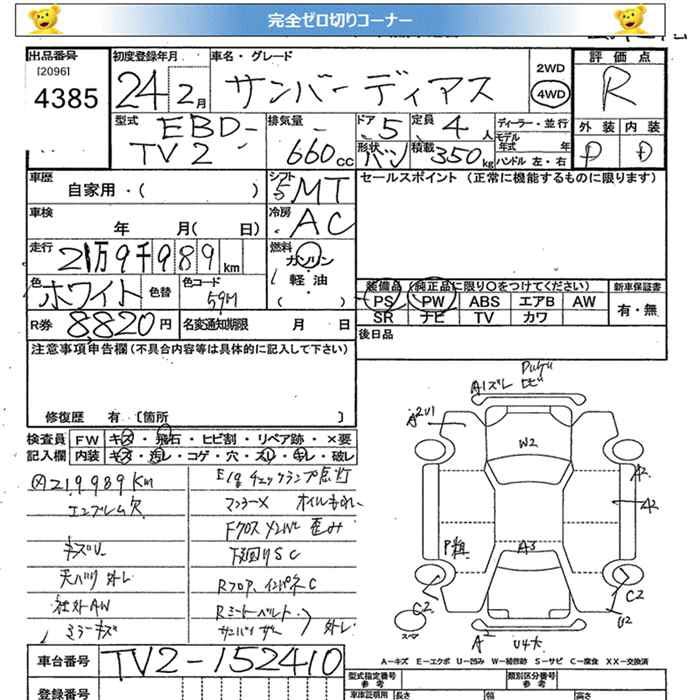 完全ゼロ切りコーナー
出品番号
[2096]
4385
初度登録年月
24 2月
車名・グレード
サンバー ディアス
2WD
4WD
評価点
R
外装 内装
D D
型式
EBD-
TV2
排気量
660cc
ドア
5
定員
4人
形状
バン
積載
350kg
ディーラー・並行
モデル
年式 年
ハンドル 左・右
車歴
自家用・( )
シフト
5MT
セールスポイント (正常に機能するものに限ります)
車検
年 月( 日)
冷房
AC
走行
21万9千989km
燃料
ガソリン
軽油
( )
色
ホワイト
色替
色コード
59M
装備品 (純正品に限り○をつけてください)
PS PW ABS エアB AW
SR ナビ TV カワ
新車保証書
有・無
R券
8820円
名変通知期限 月 日
後日品
注意事項申告欄(不具合内容等は具体的に記入して下さい)
修復歴 有 [箇所 ]
検査員
記入欄
FW キズ・飛石・ヒビ割・リペア跡・×要
内装 キズ・汚レ・コゲ・穴・スレ・キレ・破レ
219.989km
エンブレム欠
キズU
天バリ外レ
社外AW
ミラーキズ
E/gチェックランプ点灯
マフラーX オイルもれ
Fクロスメンバー歪み
下回りSC
Rフロア、インパネC
Rシートベルト
サンバイザー 外レ
A1ズレ
A2U1
W2
A2
A2
A3
C2
C2
U2
A2
U4大
スペア
A-キズ E-エクボ U-凹み W-補修跡 S-サビ C-腐食 XX-交換済
車台番号
TV2-152410
登録番号
型式指定番号
類別区分番号
車庫証明用
長さ
幅
高さ